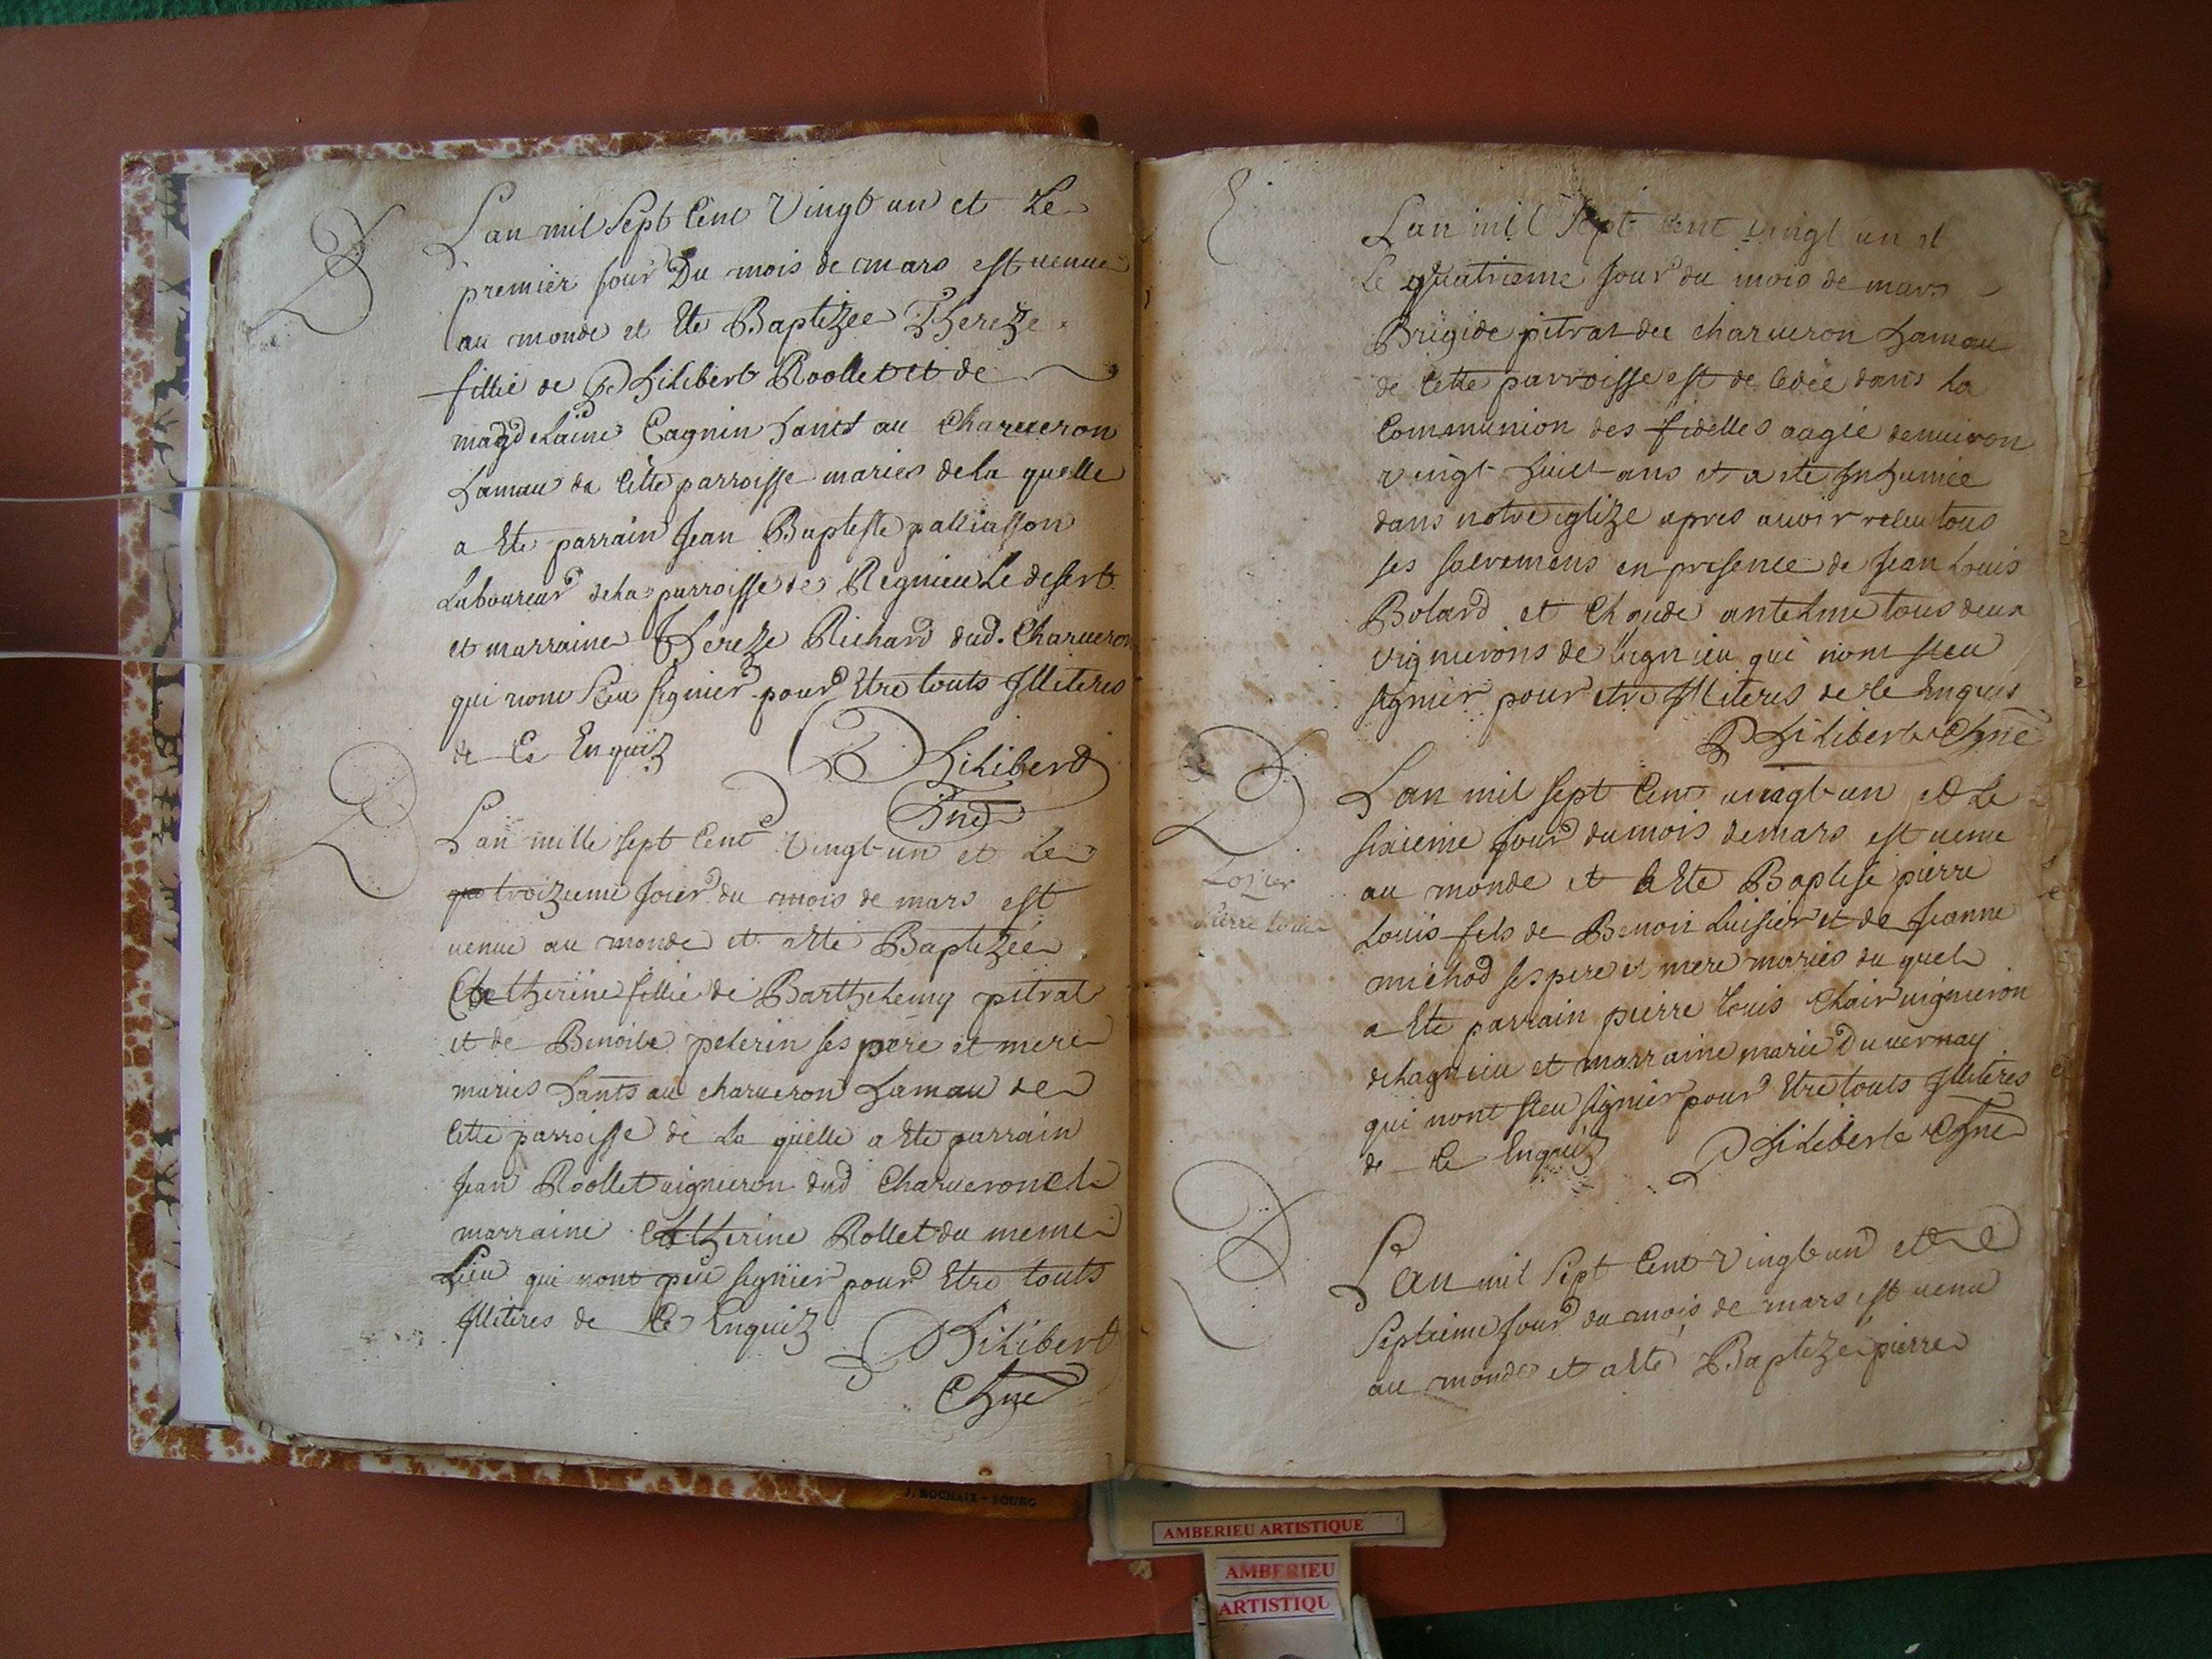 B
Lan mil Sept Cent Vingt un et Le
premier Jour Du mois de mars est venue
au monde et Ete Baptizée Thereze
fillie de Philibert Roollet et de
magdelaine Cagnin hants au Charveron
hamau de Cette parroisse mariés de la quelle
a Ete parrain Jean Baptiste palliasson
Laboureur de la parroisse de Regnieu Le desert
et marraine Thereze Richard dud. Charveron
qui nont Seu signier pour Etre touts Illiteres
de Ce Enquiz Philibert
Cyne
B
Lan mille sept Cent Vingt un et Le
troizieme Jour du mois de mars est
venue au monde et a Ete Baptizée
Catherine fillie de Barthelemy pitrat
et de Benoite pelerin ses pere et mere
mariés hants au charveron hamau de
Cette parroisse de La quelle a Ete parrain
Jean Roollet vigneron dud Charveron et
marraine Catherine Rollet du meme
Lieu qui nont peu signier pour Etre touts
Illiteres de Ce Enquiz Philibert
Cyne
E
Lan mil Sept Cent vingt un et
Le quatrieme Jour du mois de mars
Brigide pitrat du charveron hamau
de Cette parroisse est decedée dans la
Communion des fidelles aagée denviron
vingt huict ans et a ete Inhumée
dans notre eglize apres avoir receu tous
ses sacremens en presence de Jean Louis
Bolard et Claude antelme tous deux
vignerons de lagnieu qui nont sceu
signier pour etre Illiteres de Ce Enquis
Philibert Cyne
B
Lan mil sept Cent vingt un et Le
sixieme Jour du mois de mars est venu
au monde et a Ete Baptisé pierre
Lozier
Pierre Louis
Louis fils de Benoit Luisier et de Jeanne
michod ses pere et mere mariés du quel
a Ete parrain pierre Louis Clair vigneron
de lagnieu et marraine marie Duvernay
qui nont sceu signier pour Etre touts Illiteres
de Ce Enquiz Philibert Cyne
B
Lan mil Sept Cent Vingt un et Le
Septieme Jour du mois de mars est venu
au monde et a Eté Baptizé pierre
J. ROCHAIX - BOURG
AMBERIEU ARTISTIQUE
AMBERIEU
ARTISTIQU